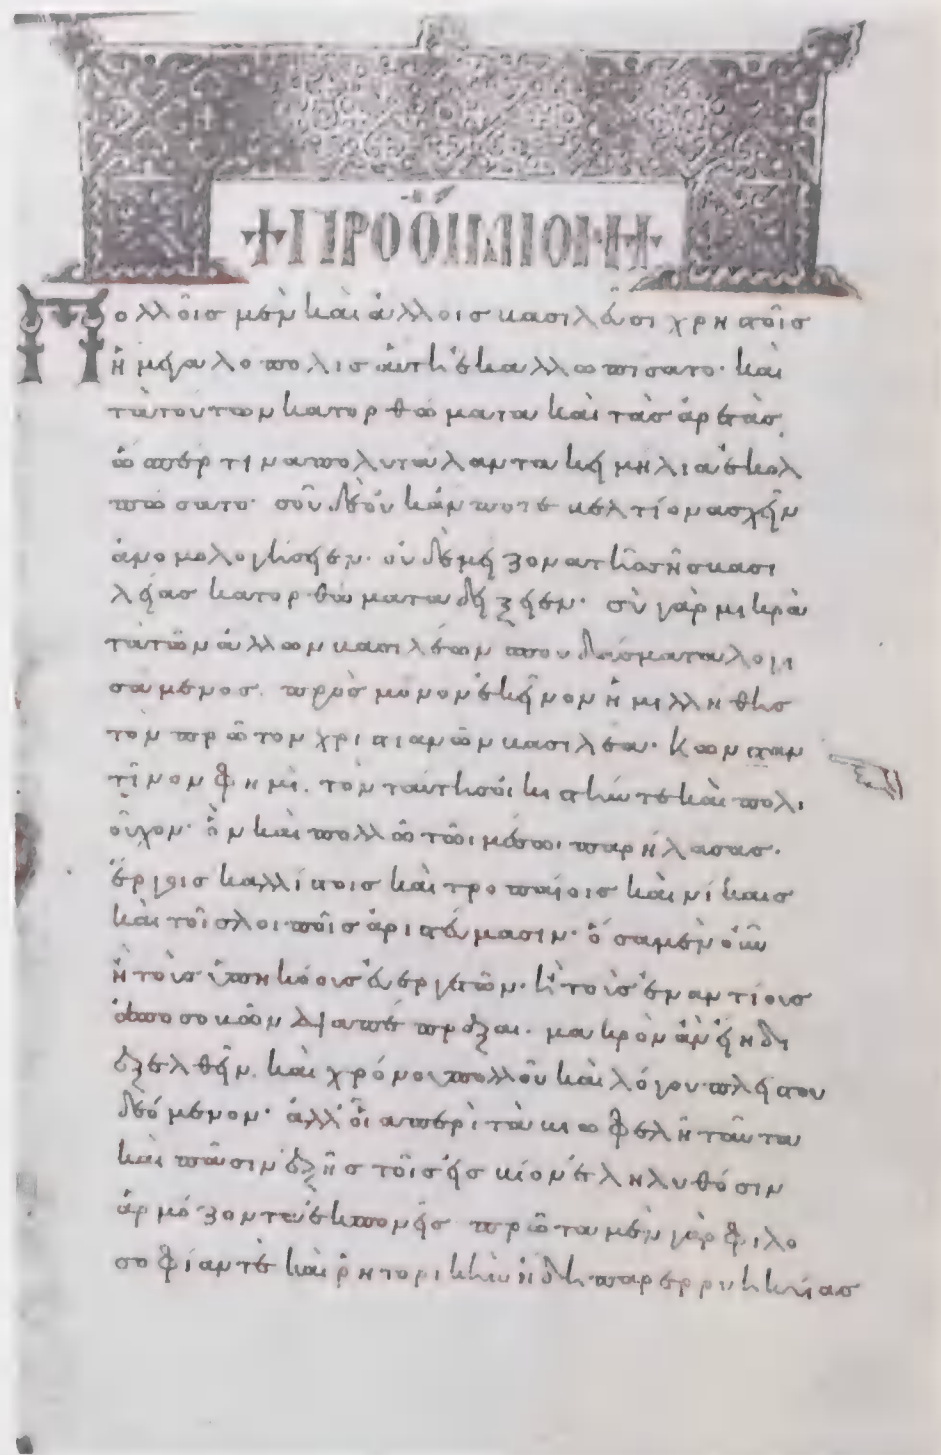 +ΠΡΟΟΙΜΙΟΝ+
Πολλοῖς μὲν καὶ ἄλλοις βασιλεῦσι χρηστοῖς
ἡ μεγαλόπολις αὕτη ἐκαλλωπίσατο· καὶ
τὰ τούτων κατορθώματα καὶ τὰς ἀρετὰς
ὥσπερ τινα πολυτάλαντα κειμήλια ἐκολ
πώσατο· σοῦ δὲ οὐκ ἄν ποτε βελτίονα σχεῖν
ἀνομολογήσειεν· οὐδὲ μείζονα τῆς σῆς βασι
λείας κατορθώματα δείξειεν· σὺ γὰρ μικρὰ
τὰ τῶν ἄλλων βασιλέων σπουδάσματα λογι
σάμενος. πρὸς μόνον ἐκεῖνον ἡμιλλήθης
τὸν πρῶτον χριστιανῶν βασιλέα· Κωνσταν
τῖνον φημι. τὸν ταύτης οἰκιστήν τε καὶ πολι
οῦχον· ὃν καὶ πολλῶ τῶι μέσωι παρήλασας·
ἔργοις καλλίστοις καὶ τροπαίοις καὶ νίκαις
καὶ τοῖς λοιποῖς ἀριστεύμασιν· ὅσα μὲν οὖν
ἢ τοὺς ὑπηκόους εὐεργετῶν· ἢ τοὺς ἐναντίους
ἀποσοβῶν διαπέπραξαι. μακρὸν ἂν εἴη δι
εξελθεῖν. καὶ χρόνου πολλοῦ καὶ λόγου πλείστου
δεόμενον· ἀλλ' οἷα περὶ τὰ βιωφελῆ ταῦτα
καὶ πᾶσιν ἑξῆς τοῖς εἰς βίον ἐληλυθόσιν
ἁρμόζοντα ἐκπονεῖς πρῶτα μὲν γὰρ φιλο
σοφίαν τε καὶ ῥητορικὴν ἤδη παρερρυηκυίας